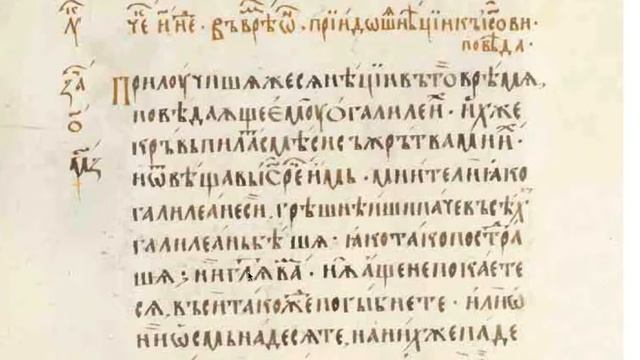 въ врѣ ѡ҃. прїидошѫ нѣцїи къ і҃сови.
повѣда.
Прилоучишѧ же сѧ нѣцїи въ то врѣмѧ,
повѣдаѫще емоу о галилеи. ихже
кръвь пилат съмѣси съ жрътвами и.
и ѡвѣщавы і҃с рече имь. мнители ꙗко
галилеане си, грѣшнѣиши паче въсѣх
галилеань бѣшѧ. ꙗко тако постра
шѧ; ни гл҃ѧ ва. нѫ аще не покаете
сѧ, въси такожде погыбнете. или ѡ
ни ѡсмьнадесѧте, на нихже паде